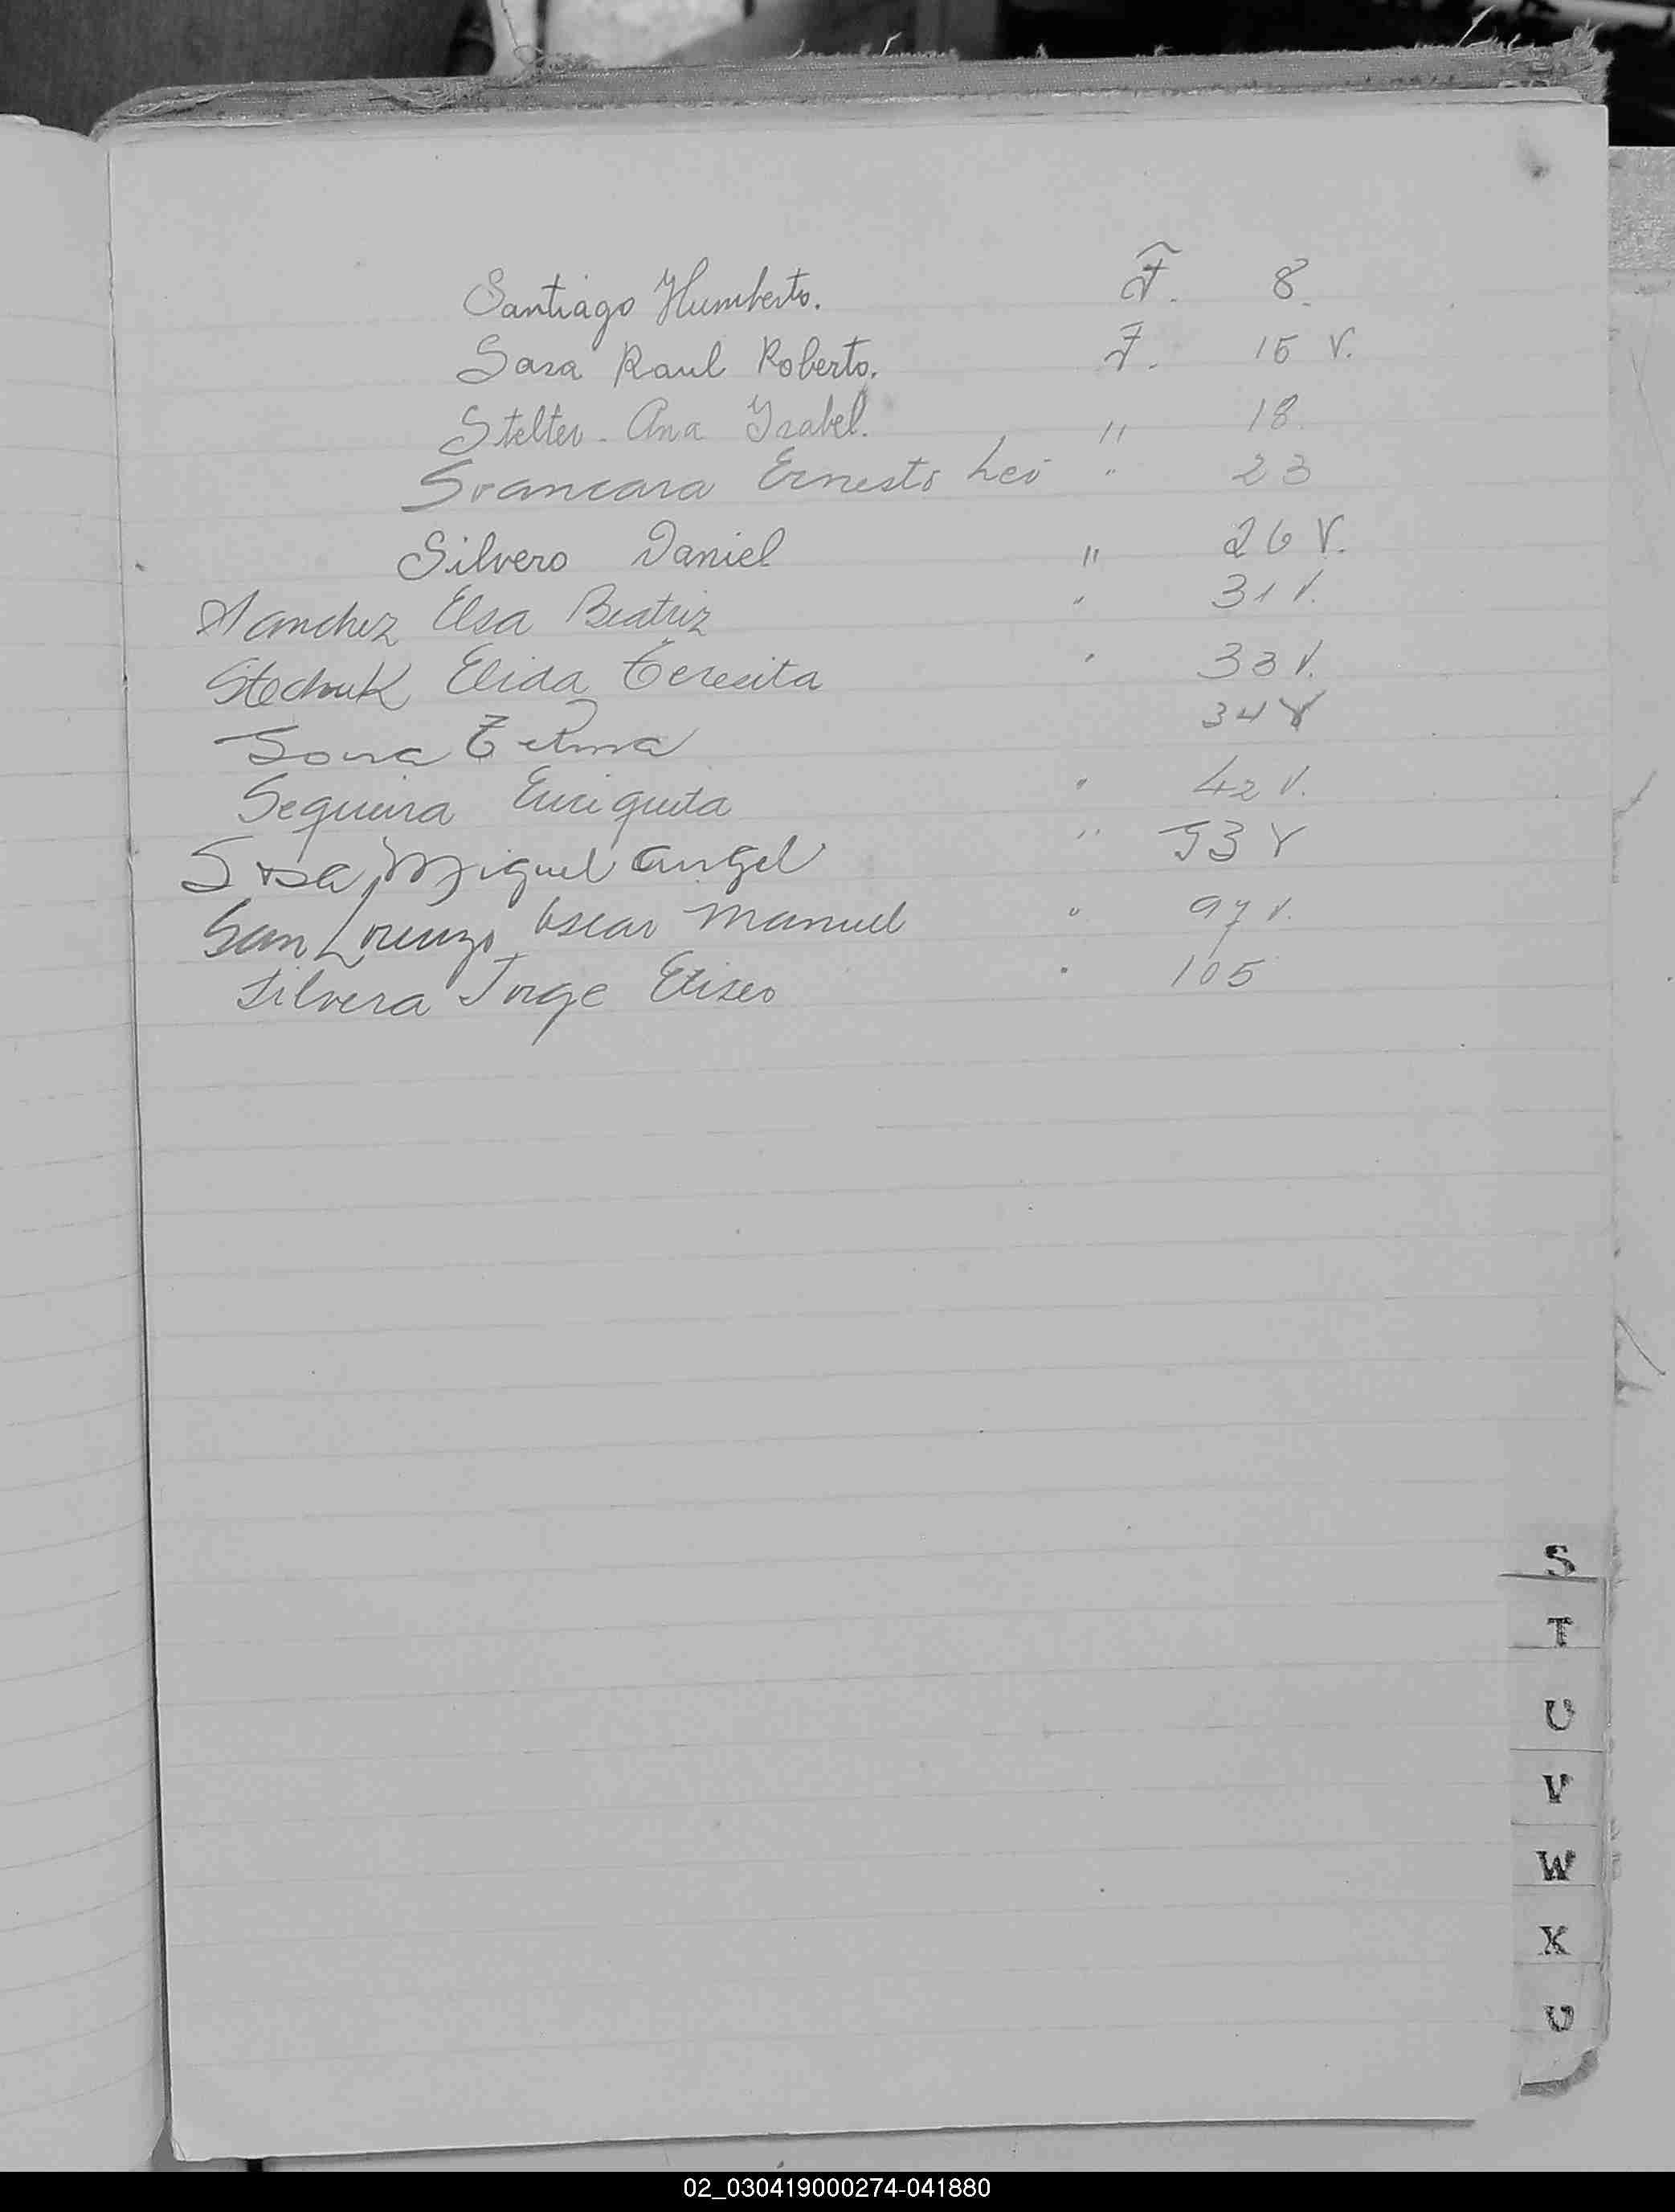 Santiago Humberto. F. 8.
Sasa Raul Roberto. F. 15 V.
Stelter - Ana Ysabel. " 18.
Svancara Ernesto Leo " 23
Silvero Daniel " 26 V.
Sanchez Elsa Beatriz " 31 V.
Stechuk Elida Teresita " 33 V.
Sosa Telma 34 V
Sequeira Enriqueta " 42 V.
Sosa, Miguel Angel " 53 V
San Lorenzo Oscar Manuel " 97 V.
Silvera Jorge Eliseo " 105
S
T
U
V
W
X
U
02_030419000274-041880